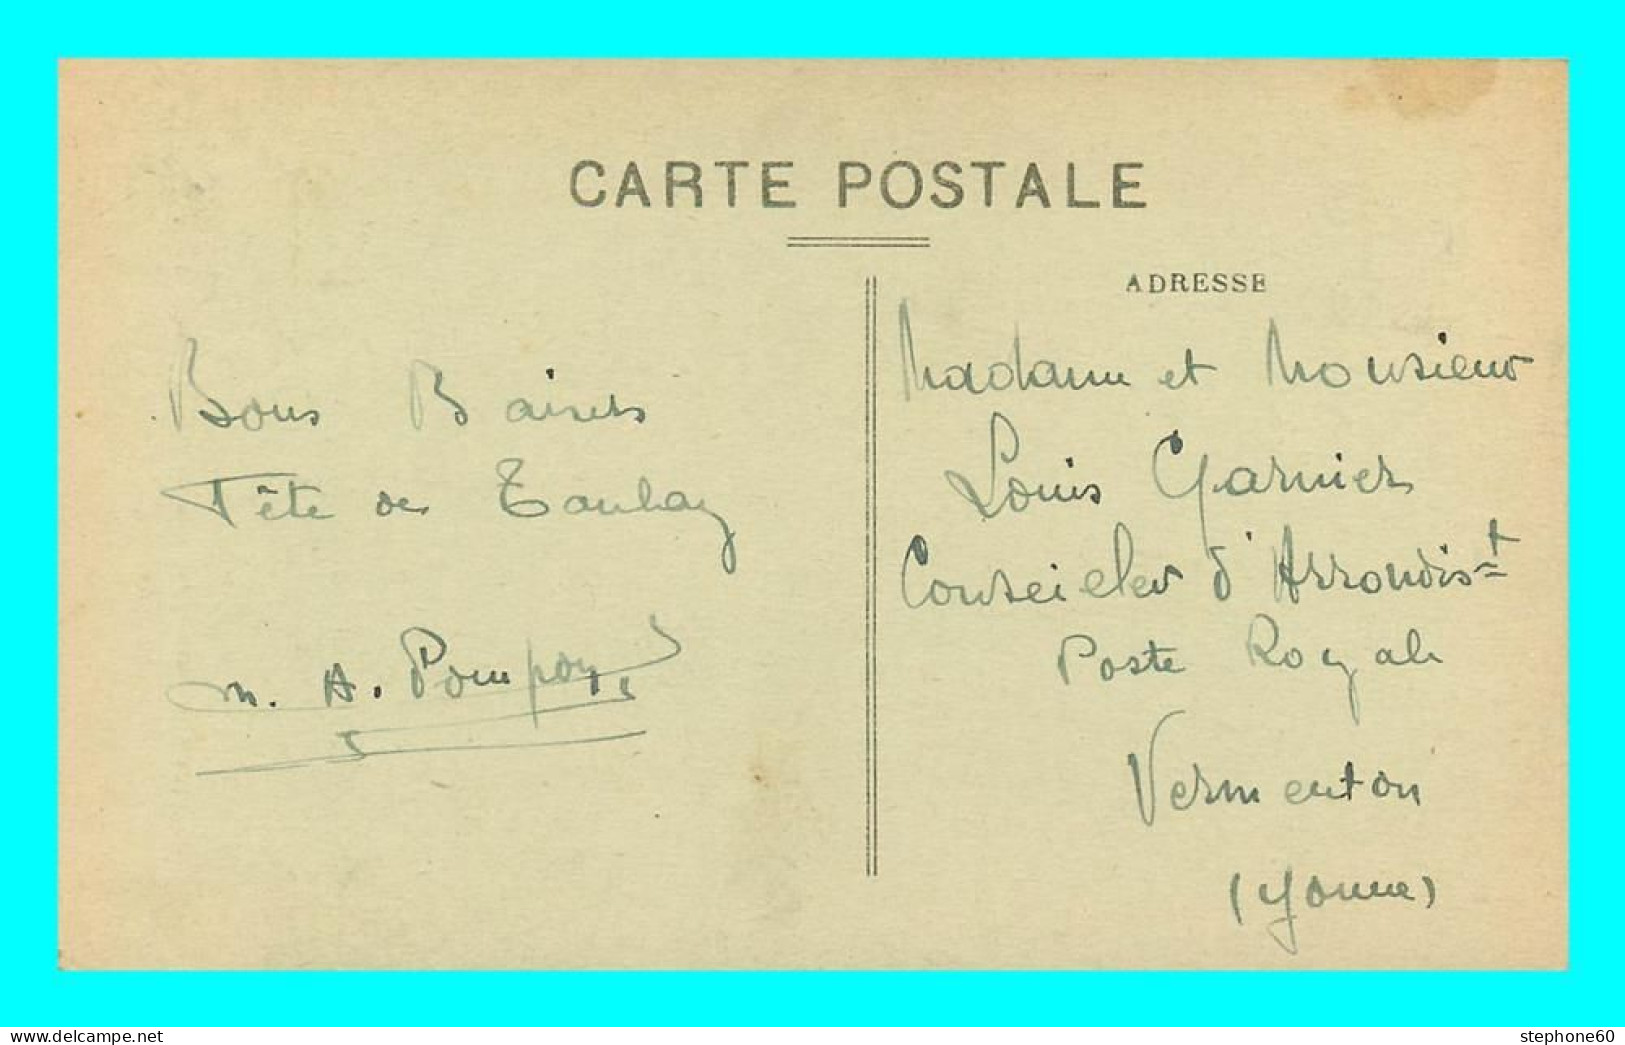 CARTE POSTALE
ADRESSE
Bons Baisers
Fête de Tanlay
M. A. Pompon
Madame et Monsieur
Louis Garnier
Conseiller d'Arrondist
Poste Royale
Vermenton
(Yonne)
www.delcampe.net
stephone60